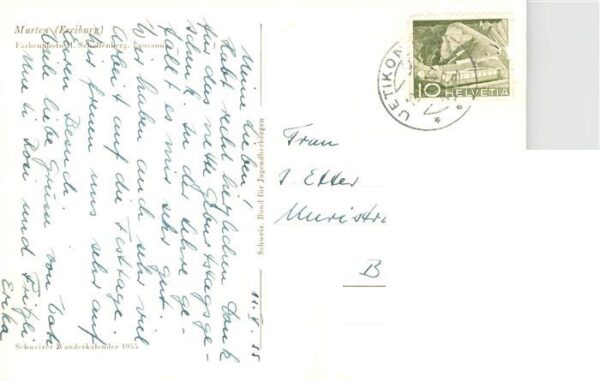 Murten (Freiburg)
Meine Lieben!
Habt recht herzlichen Dank
für das nette Geburtstagsge-
schenk. In der Lehre ge-
fällt es mir sehr gut.
Wir haben auch sehr viel
Arbeit auf die Festtage.
Wir freuen uns sehr auf
Euren Besuch.
Viele liebe Grüsse von
und Fritzli
Erika
11. V. 55
Schweizer Wanderkalender 1955
Schweiz. Bund für Jugendherbergen
UETIKON
10 HELVETIA
Frau
J. Etter
Muristr
B